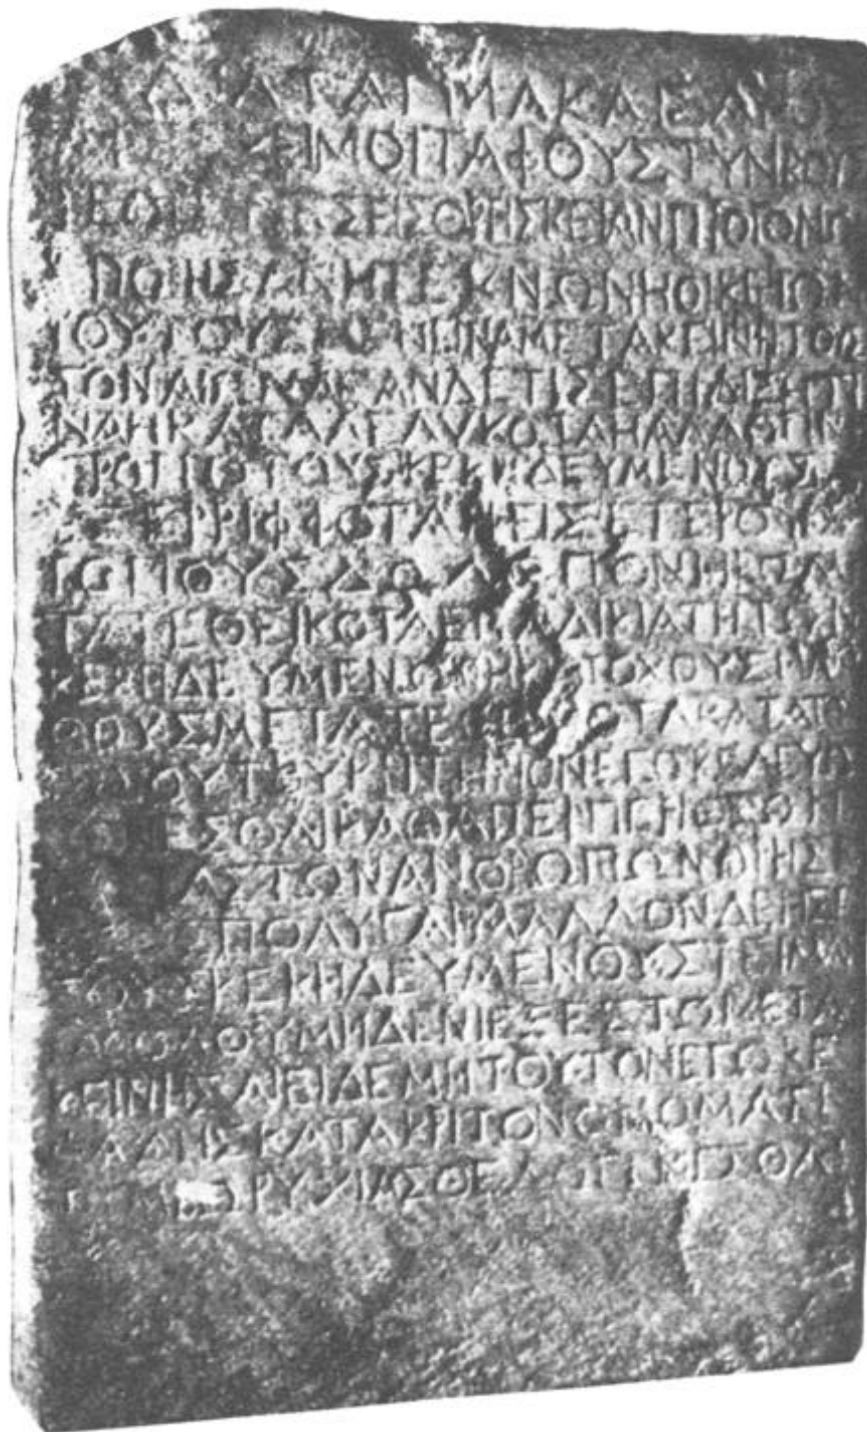 ΔΙΑΤΑΓΜΑΚΑΙΣΑΡΟΣ
ΜΟΙΤΑΦΟΥΣΤΥΝΒΟΥ
ΕΙΣΘΡΗΣΚΕΙΑΝΠΡΟΓΟΝΩ
ΠΟΙΗΣΑΝΗΤΕΚΝΩΝΗΟΙΚΕΙΩ
ΤΟΥΤΟΥΣΜΕΝΕΙΝΑΜΕΤΑΚΕΙΝΗΤΟΥΣ
ΤΟΝΑΙΩΝΑΕΑΝΔΕΤΙΣΕΠΙΔΙΞΗΤΙ
ΝΑΗΚΑΤΑΛΕΛΥΚΟΤΑΗΑΛΛΩΤΙΝ
ΤΡΟΠΩΤΟΥΣΚΕΚΗΔΕΥΜΕΝΟΥΣ
ΕΞΕΡΡΙΦΦΟΤΑΗΕΙΣΕΤΕΡΟΥ
ΤΟΠΟΥΣΔΩΛΩΠΟΝΗΡΩΜΕ
ΤΑΤΕΘΕΙΚΟΤΑΕΠΑΔΙΚΙΑΤΗΤΩΝ
ΚΕΚΗΔΕΥΜΕΝΩΝΗΚΑΤΟΧΟΥΣΗΛΙ
ΘΟΥΣΜΕΤΑΤΕΘΕΙΚΟΤΑΚΑΤΑΤΟΥ
ΤΟΙΟΥΤΟΥΚΡΙΤΗΡΙΟΝΕΓΩΚΕΛΕΥΩ
ΓΕΝΕΣΘΑΙΚΑΘΑΠΕΡΠΕΡΙΘΕΩΝ
ΤΑΣΤΩΝΑΝΘΡΩΠΩΝΘΡΗΣ
ΠΟΛΥΓΑΡΜΑΛΛΟΝΔΕΗΣΕΙ
ΤΟΥΣΚΕΚΗΔΕΥΜΕΝΟΥΣΤΕΙΜΑ
ΚΑΘΟΛΟΥΜΗΔΕΝΙΕΞΕΣΤΩΜΕΤΑ
ΚΕΙΝΗΣΑΙΕΙΔΕΜΗΤΟΥΤΟΝΕΓΩΚΕ
ΦΑΛΗΣΚΑΤΑΚΡΙΤΟΝΟΝΟΜΑΤΙ
ΤΥΜΒΩΡΥΧΙΑΣΘΕΛΩΓΕΝΕΣΘΑΙ